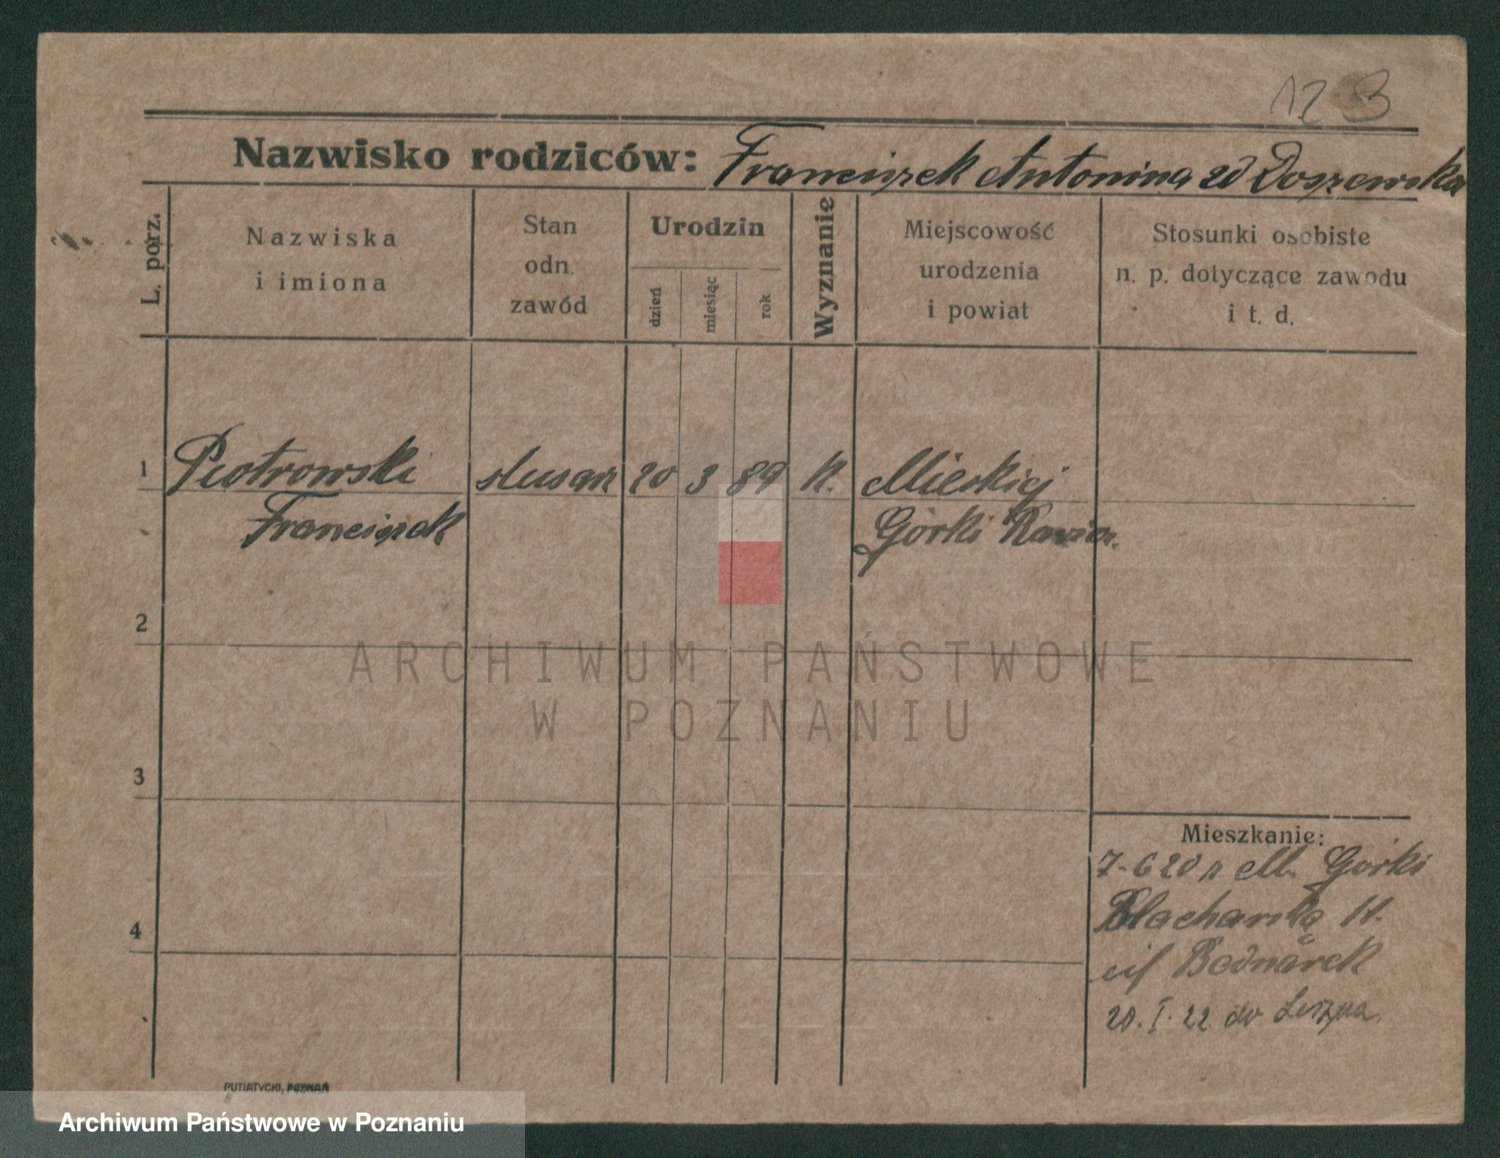 123
Nazwisko rodziców: Franciszek Antonina zd Doszewska
L. porz.
Nazwiska
i imiona
Stan
odn.
zawód
Urodzin
dzień
miesiąc
rok
Wyznanie
Miejscowość
urodzenia
i powiat
Stosunki osobiste
n. p. dotyczące zawodu
i t. d.
1 Piotrowski ślusarz 20 3 89 k. Mieskiej
Franciszek Górki Rawicz.
2
3
4
Mieszkanie:
7-6 20 z M. Górki
Blacharska 11.
Bednarek
20. I. 22 do Leszna.
PUTIATYCKI, POZNAŃ
ARCHIWUM PAŃSTWOWE
W POZNANIU
Archiwum Państwowe w Poznaniu